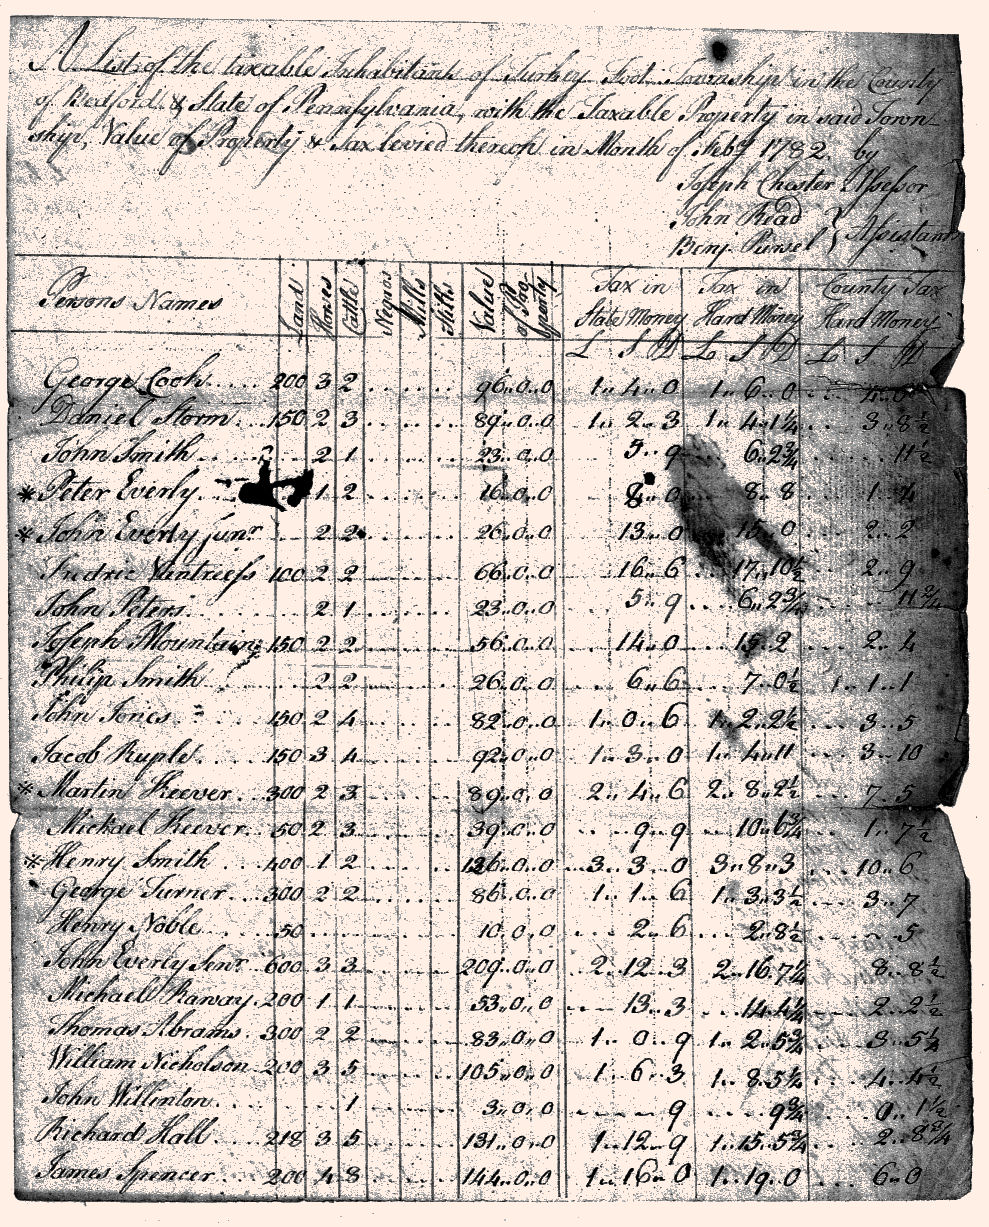 A List of the taxable Inhabitants of Turkey Foot Township in the County
of Bedford & State of Pennsylvania, with the Taxable Property in said Town
ship, Value of Property & Tax levied thereon in Month of Feby 1782. by
Joseph Chester Assessor
John Read
Benj. Assistants
Persons Names Land Horses Cattle Negros Mills Stills Value of Property Tax in State Money Tax in Hard Money County Tax Hard Money
L S D L S D L S D
George Cook.... 200 3 2 96..0..0 1..4..0 1..6..0 4..0
Daniel Storm... 150 2 3 89..0..0 1..2..3 1..4..1¼ 3..8½
John Smith 2 1 23..0..0 5..9 6..2¾ 11½
* Peter Everly 1 2 16..0..0 8..0 8..8 1..4
* John Everly junr 2 2 26..0..0 13..0 15..0 2..2
Fredric 100 2 2 66..0..0 16..6 17..10½ 2..9
John Peters 2 1 23..0..0 5..9 6..2¾ 11 2/4
Joseph Mountain 150 2 2 56..0..0 14..0 15..2 2..4
Philip Smith 2 2 26..0..0 6..6 7..0½ 1..1
John Jones 150 2 4 82..0..0 1..0..6 1..2..2½ 3..5
Jacob Ruple 150 3 4 92..0..0 1..3..0 1..4..11 3..10
* Martin Keever 300 2 3 89..0..0 2..4..6 2..8..2½ 7..5
Michael Keever 50 2 3 39..0..0 9..9 10..6¾ 1..7½
* Henry Smith 400 1 2 126..0..0 3..3..0 3..8..3 10..6
George Turner 300 2 2 86..0..0 1..1..6 1..3..3½ 3..7
Henry Noble 50 10..0..0 2..6 2..8½ 5
John Everly Senr 600 3 3 209..0..0 2..12..3 2..16..7¼ 8..8½
Michael 200 1 1 53..0..0 13..3 14..4¼ 2..2½
Thomas Abrams 300 2 2 83..0..0 1..0..9 1..2..5¾ 3..5¼
William Nicholson 200 3 5 105..0..0 1..6..3 1..8..5¼ 4..4½
John Willinton 1 3..0..0 9 9¾ 0..1½
Richard Hall 218 3 5 131..0..0 1..12..9 1..15..5¾ 2..8¾
James Spencer 200 4 8 144..0..0 1..16..0 1..19..0 6..0